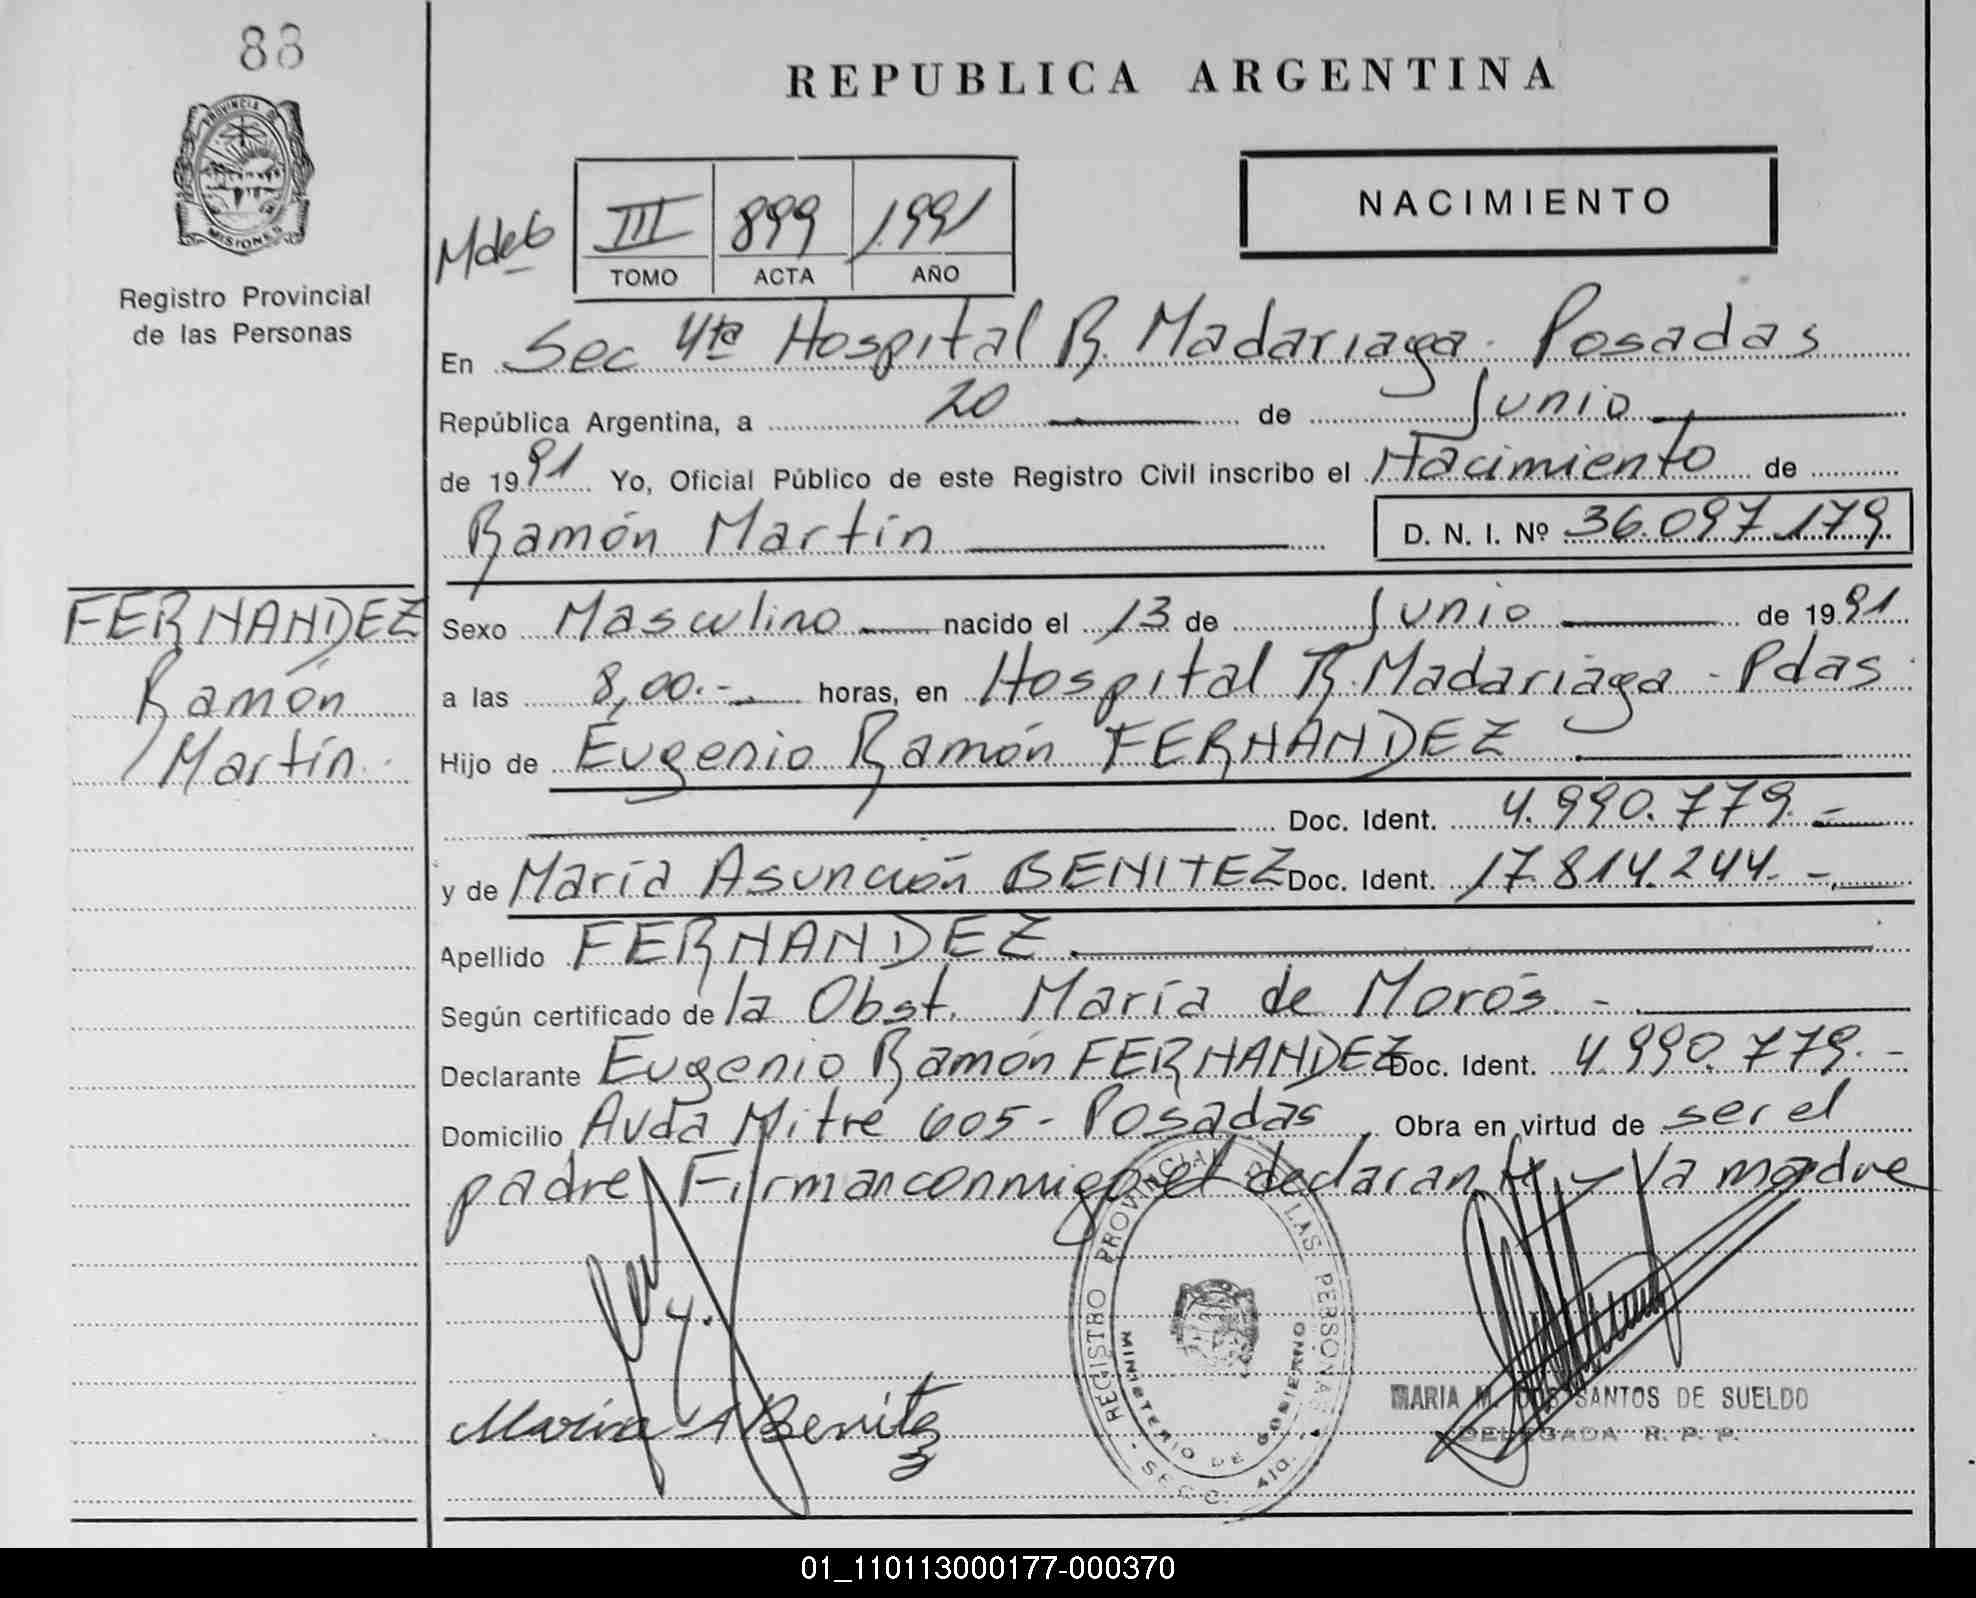 88
PROVINCIA DE
MISIONES
Registro Provincial
de las Personas
FERNANDEZ
Ramón
Martín.
REPUBLICA ARGENTINA
NACIMIENTO
III 899 1991
TOMO ACTA AÑO
En Sec 4ta Hospital R. Madariaga - Posadas
República Argentina, a 20 de Junio
de 1991 Yo, Oficial Público de este Registro Civil inscribo el Nacimiento de
Ramón Martín D. N. I. Nº 36.097.179
Sexo Masculino nacido el 13 de Junio de 1991
a las 8,00.- horas, en Hospital R. Madariaga - Pdas
Hijo de Eugenio Ramón FERNANDEZ
Doc. Ident. 4.990.779.-
y de María Asunción BENITEZ Doc. Ident. 17.814.244.-
Apellido FERNANDEZ.
Según certificado de la Obst. María de Morós.-
Declarante Eugenio Ramón FERNANDEZ Doc. Ident. 4.990.779.-
Domicilio Avda Mitre 605 - Posadas Obra en virtud de ser el
padre Firman conmigo el declarante y la madre
María A Benitez
REGISTRO PROVINCIAL DE LAS PERSONAS
MINISTERIO DE GOBIERNO
- SECC. 4ta. -
MARIA M. DOS SANTOS DE SUELDO
DELEGADA R. P. P.
01_110113000177-000370